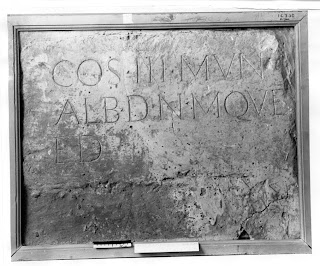 COS·III·MVN
ALB·D·N·MQVE
E·D